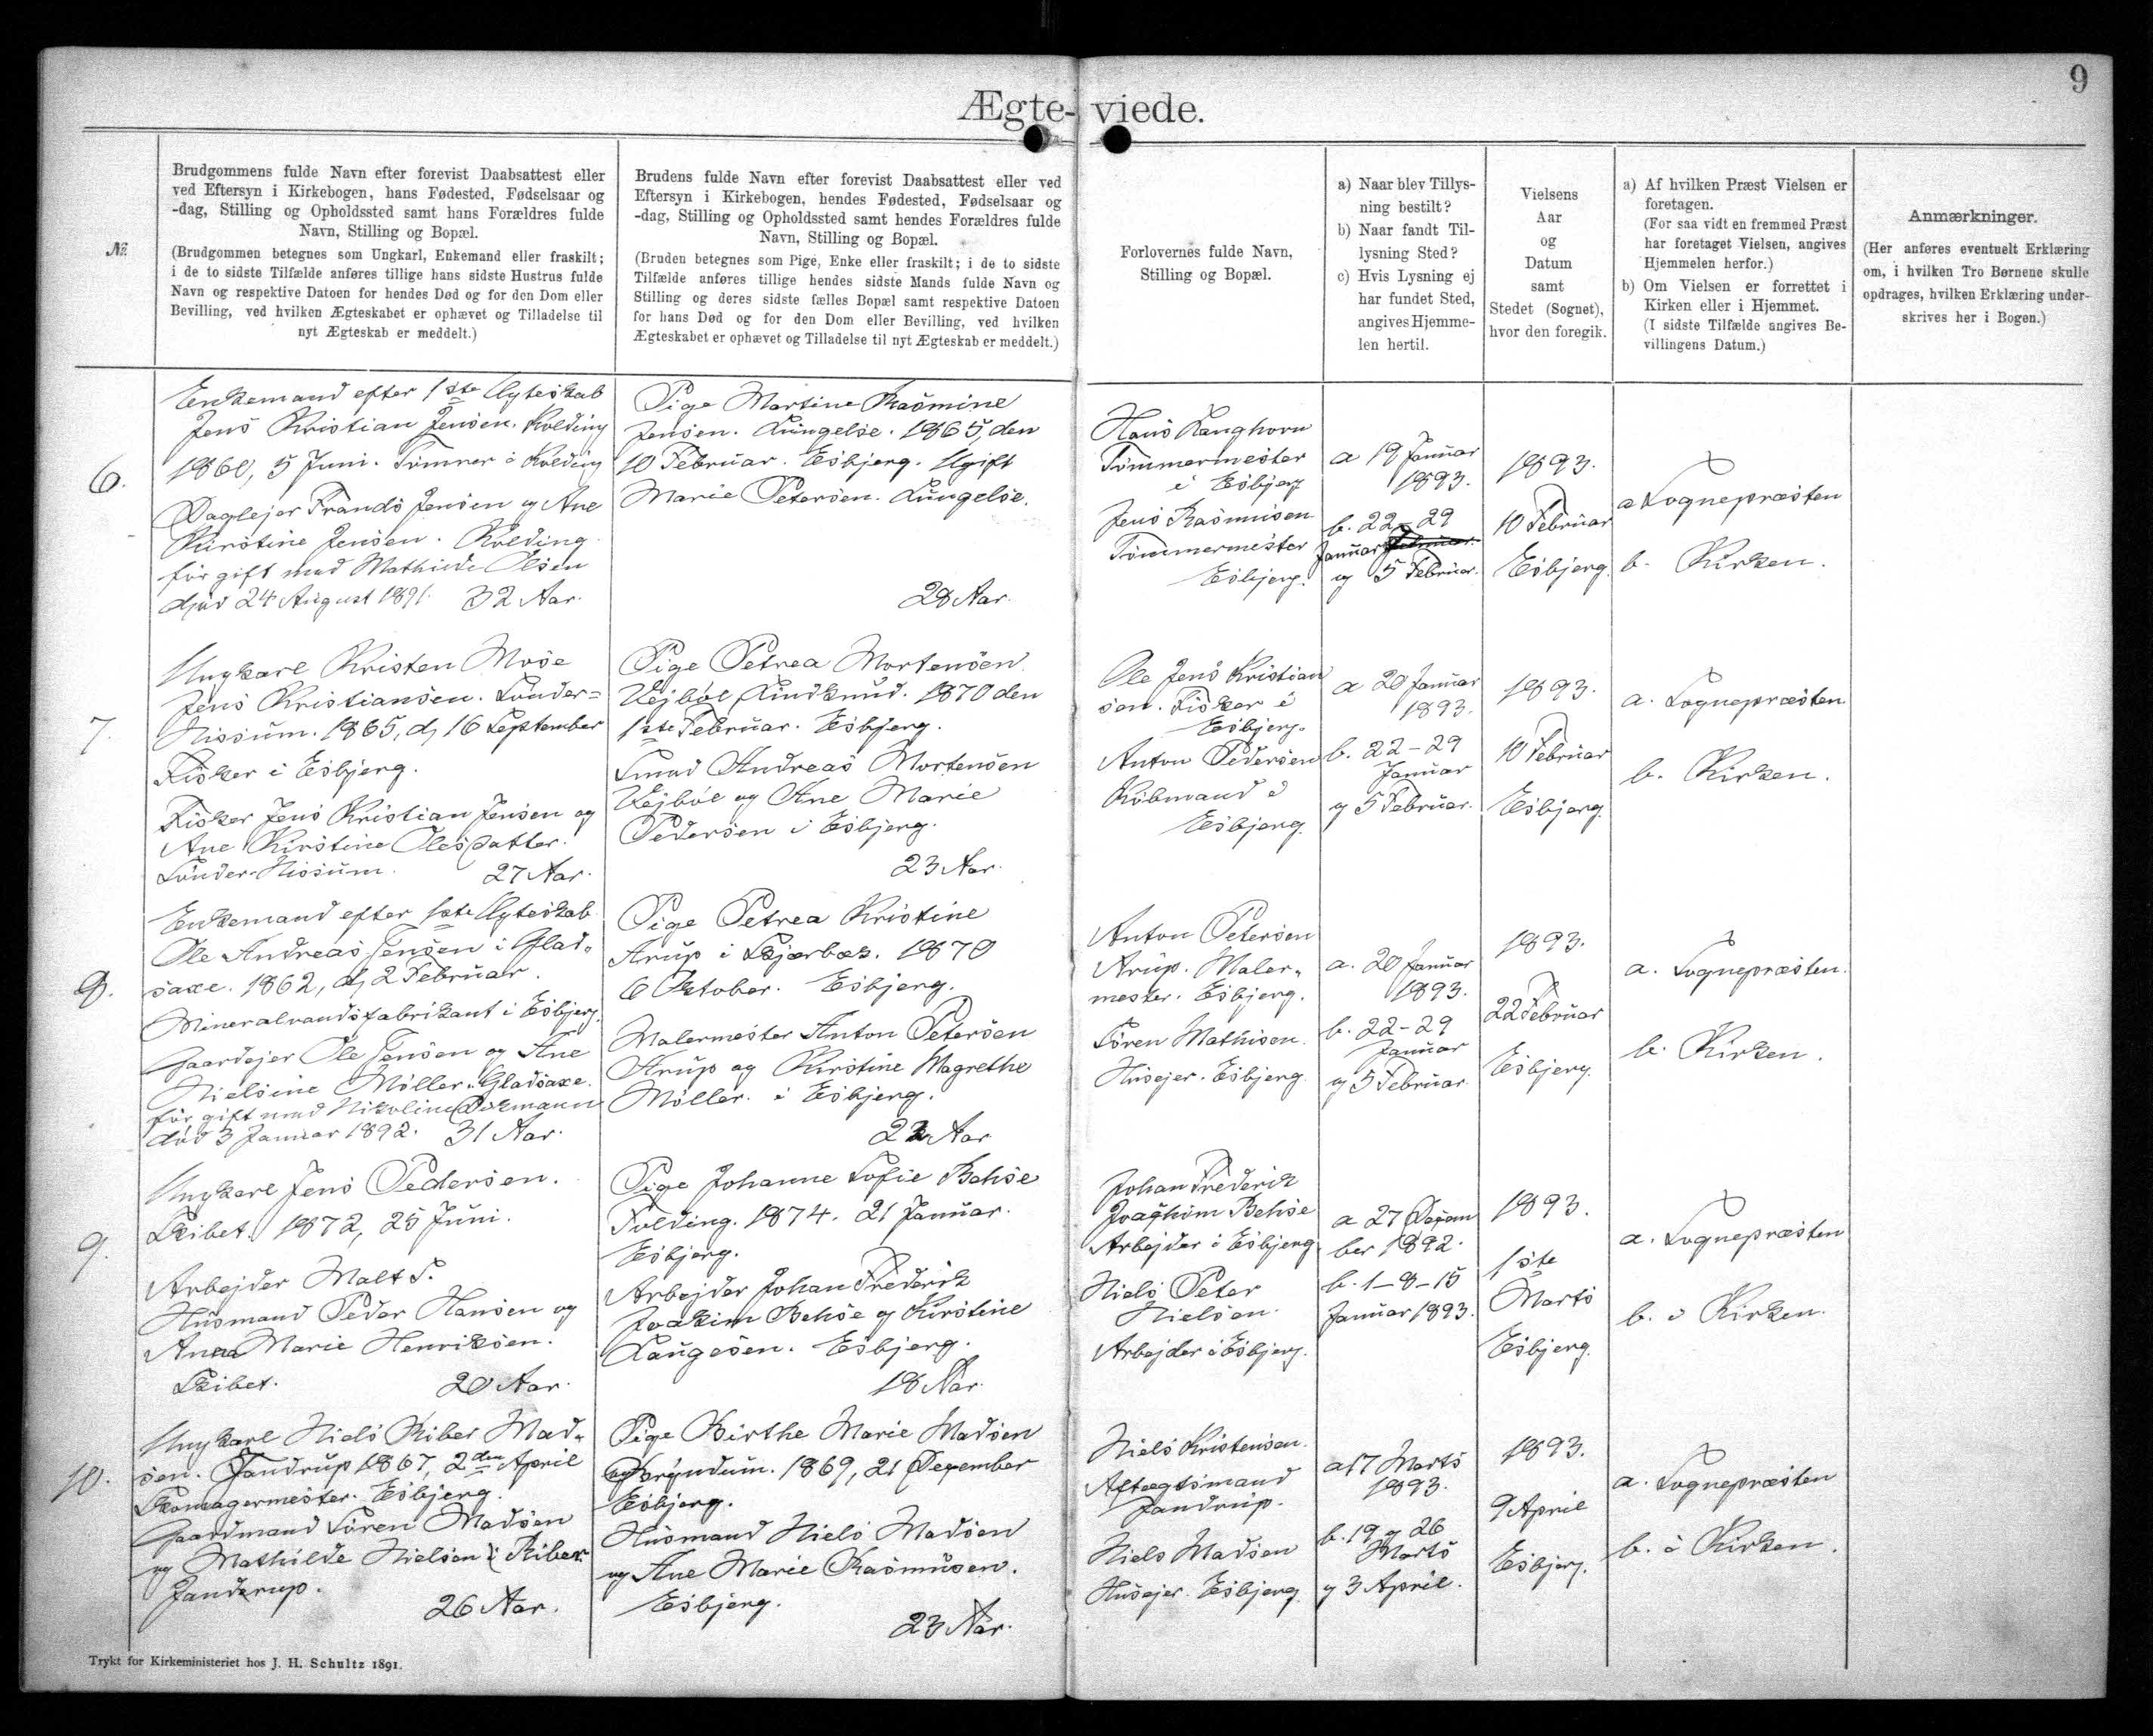 9
Ægte- viede.
№
Brudgommens fulde Navn efter forevist Daabsattest eller
ved Eftersyn i Kirkebogen, hans Fødested, Fødselsaar og
-dag, Stilling og Opholdssted samt hans Forældres fulde
Navn, Stilling og Bopæl.
(Brudgommen betegnes som Ungkarl, Enkemand eller fraskilt;
i de to sidste Tilfælde anføres tillige hans sidste Hustrus fulde
Navn og respektive Datoen for hendes Død og for den Dom eller
Bevilling, ved hvilken Ægteskabet er ophævet og Tilladelse til
nyt Ægteskab er meddelt.)
Brudens fulde Navn efter forevist Daabsattest eller ved
Eftersyn i Kirkebogen, hendes Fødested, Fødselsaar og
-dag, Stilling og Opholdssted samt hendes Forældres fulde
Navn, Stilling og Bopæl.
(Bruden betegnes som Pige, Enke eller fraskilt; i de to sidste
Tilfælde anføres tillige hendes sidste Mands fulde Navn og
Stilling og deres sidste fælles Bopæl samt respektive Datoen
for hans Død og for den Dom eller Bevilling, ved hvilken
Ægteskabet er ophævet og Tilladelse til nyt Ægteskab er meddelt.)
Forlovernes fulde Navn,
Stilling og Bopæl.
a) Naar blev Tillys-
ning bestilt?
b) Naar fandt Til-
lysning Sted?
c) Hvis Lysning ej
har fundet Sted,
angives Hjemme-
len hertil.
Vielsens
Aar
og
Datum
samt
Stedet (Sognet),
hvor den foregik.
a) Af hvilken Præst Vielsen er
foretagen.
(For saa vidt en fremmed Præst
har foretaget Vielsen, angives
Hjemmelen herfor.)
b) Om Vielsen er forrettet i
Kirken eller i Hjemmet.
(I sidste Tilfælde angives Be-
villingens Datum.)
Anmærkninger.
(Her anføres eventuelt Erklæring
om, i hvilken Tro Børnene skulle
opdrages, hvilken Erklæring under-
skrives her i Bogen.)
6.
Enkemand efter 1ste Ægteskab
Jens Kristian Jensen. Kolding
1860, 5 Juni. Tømrer i Kolding
Daglejer Frands Jensen og Ane
Kirstine Jensen. Kolding
før gift med Mathilde Olsen
død 24 August 1891. 32 Aar.
Pige Martine Rasmine
Jensen. Lüngelse. 1865, den
10 Februar. Esbjerg. Ugift
Marie Petersen. Lüngelse.
28 Aar.
Hans Langhorn
Tømmermester
i Esbjerg
Jens Rasmusen
Tømmermester
Esbjerg.
a 19 Januar
1893.
b. 22-29
Januar
og 5 Februar.
1893.
10 Februar
Esbjerg.
a Sognepræsten
b. Kirken.
7.
Ungkarl Kristen Mose
Jens Kristiansen. Sønder-
Nissum. 1865, d, 16 September
Fisker i Esbjerg.
Fisker Jens Kristian Jensen og
Ane Kirstine Olesdatter.
Sønder-Nissum. 27 Aar.
Pige Petrea Mortensen
Vejbøl, Lindknud. 1870 den
1ste Februar. Esbjerg.
Smed Andreas Mortensen
Vejbøl og Ane Marie
Pedersen i Esbjerg.
23 Aar.
Ole Jens Kristian
sen. Fisker i
Esbjerg.
Anton Pedersen
Købmand i
Esbjerg.
a 20 Januar
1893.
b. 22-29
Januar
og 5 Februar.
1893.
10 Februar
Esbjerg.
a. Sognepræsten
b. Kirken.
8.
Enkemand efter 1ste Ægteskab
Ole Andreas Jensen i Glad-
saxe. 1862, d, 2 Februar.
Mineralvandsfabrikant i Esbjerg.
Gaardejer Ole Jensen og Ane
Nielsine Møller. Gladsaxe.
før gift med Nikoline Dekmann
død 3 Januar 1892. 31 Aar.
Pige Petrea Kristine
Arup i Skjærbæk. 1870
6 Oktober. Esbjerg.
Malermester Anton Petersen
Arup og Kirstine Magrethe
Møller. i Esbjerg.
22 Aar
Anton Petersen
Arup. Maler-
mester. Esbjerg.
Søren Mathisen.
Husejer. Esbjerg
a. 20 Januar
1893.
b. 22-29
Januar
og 5 Februar
1893.
22 Februar
Esbjerg.
a. Sognepræsten.
b. Kirken.
9.
Ungkarl Jens Pedersen.
Skibet. 1872, 25 Juni.
Arbejder Malt S.
Husmand Peder Hansen og
Anna Marie Henriksen.
Skibet. 20 Aar.
Pige Johanne Sofie Behse
Folding. 1874. 21 Januar.
Esbjerg.
Arbejder Johan Frederik
Joakim Behse og Kirstine
Laugesen. Esbjerg.
18 Aar.
Johan Frederik
Joachim Behse
Arbejder i Esbjerg
Niels Peter
Nielsen.
Arbejder i Esbjerg.
a 27 Decem
ber 1892.
b. 1-8-15
Januar 1893.
1893.
1ste
Marts
Esbjerg.
a. Sognepræsten
b. i Kirken.
10.
Ungkarl Niels Riber Mad-
sen. Jandrup 1867, 2den April
Skomagermester. Esbjerg.
Gaardmand Søren Madsen
og Mathilde Nielsen i Riber
Janderup.
26 Aar.
Pige Birthe Marie Madsen
Bryndum. 1869, 21 December
Esbjerg.
Husmand Niels Madsen
og Ane Marie Rasmusen.
Esbjerg.
23 Aar.
Niels Kristensen.
Aftægtsmand
Jandrup.
Niels Madsen
Husejer. Esbjerg
a 17 Marts
1893.
b. 19 og 26
Marts
og 3 April.
1893.
9 April
Esbjerg.
a. Sognepræsten
b. i Kirken.
Trykt for Kirkeministeriet hos J. H. Schultz 1891.